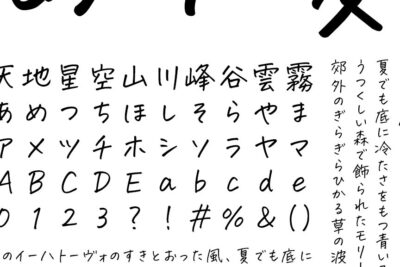 天地星空山川峰谷雲霧
あめつちほしそらやま
アメツチホシソラヤマ
ABCDEabcde
0123?!#%&()
夏でも底に冷たさをもつ青い
うつくしい森で飾られたモリー
郊外のぎらぎらひかる草の波
のイーハトーヴォのすきとおった風、夏でも底に